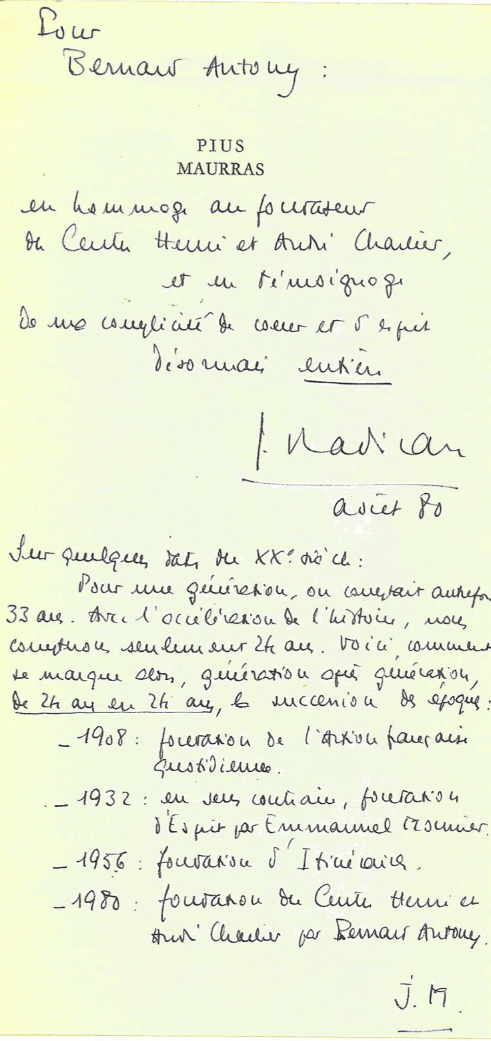 Pour
Bernard Antony :
PIUS
MAURRAS
en hommage au fondateur
du Centre Henri et André Charlier,
et en témoignage
de ma complicité de coeur et d'esprit
désormais entière
J. Madiran
août 80
Sur quelques dates du XXe siècle :
Pour une génération, on comptait autrefois
33 ans. Avec l'accélération de l'histoire, nous
comptons seulement 24 ans. Voici comment
se marque alors, génération après génération,
de 24 ans en 24 ans, la succession des époques :
– 1908 : fondation de l'Action française
quotidienne.
– 1932 : en sens contraire, fondation
d'Esprit par Emmanuel Mounier.
– 1956 : fondation d'Itinéraires.
– 1980 : fondation du Centre Henri et
André Charlier par Bernard Antony.
J. M.